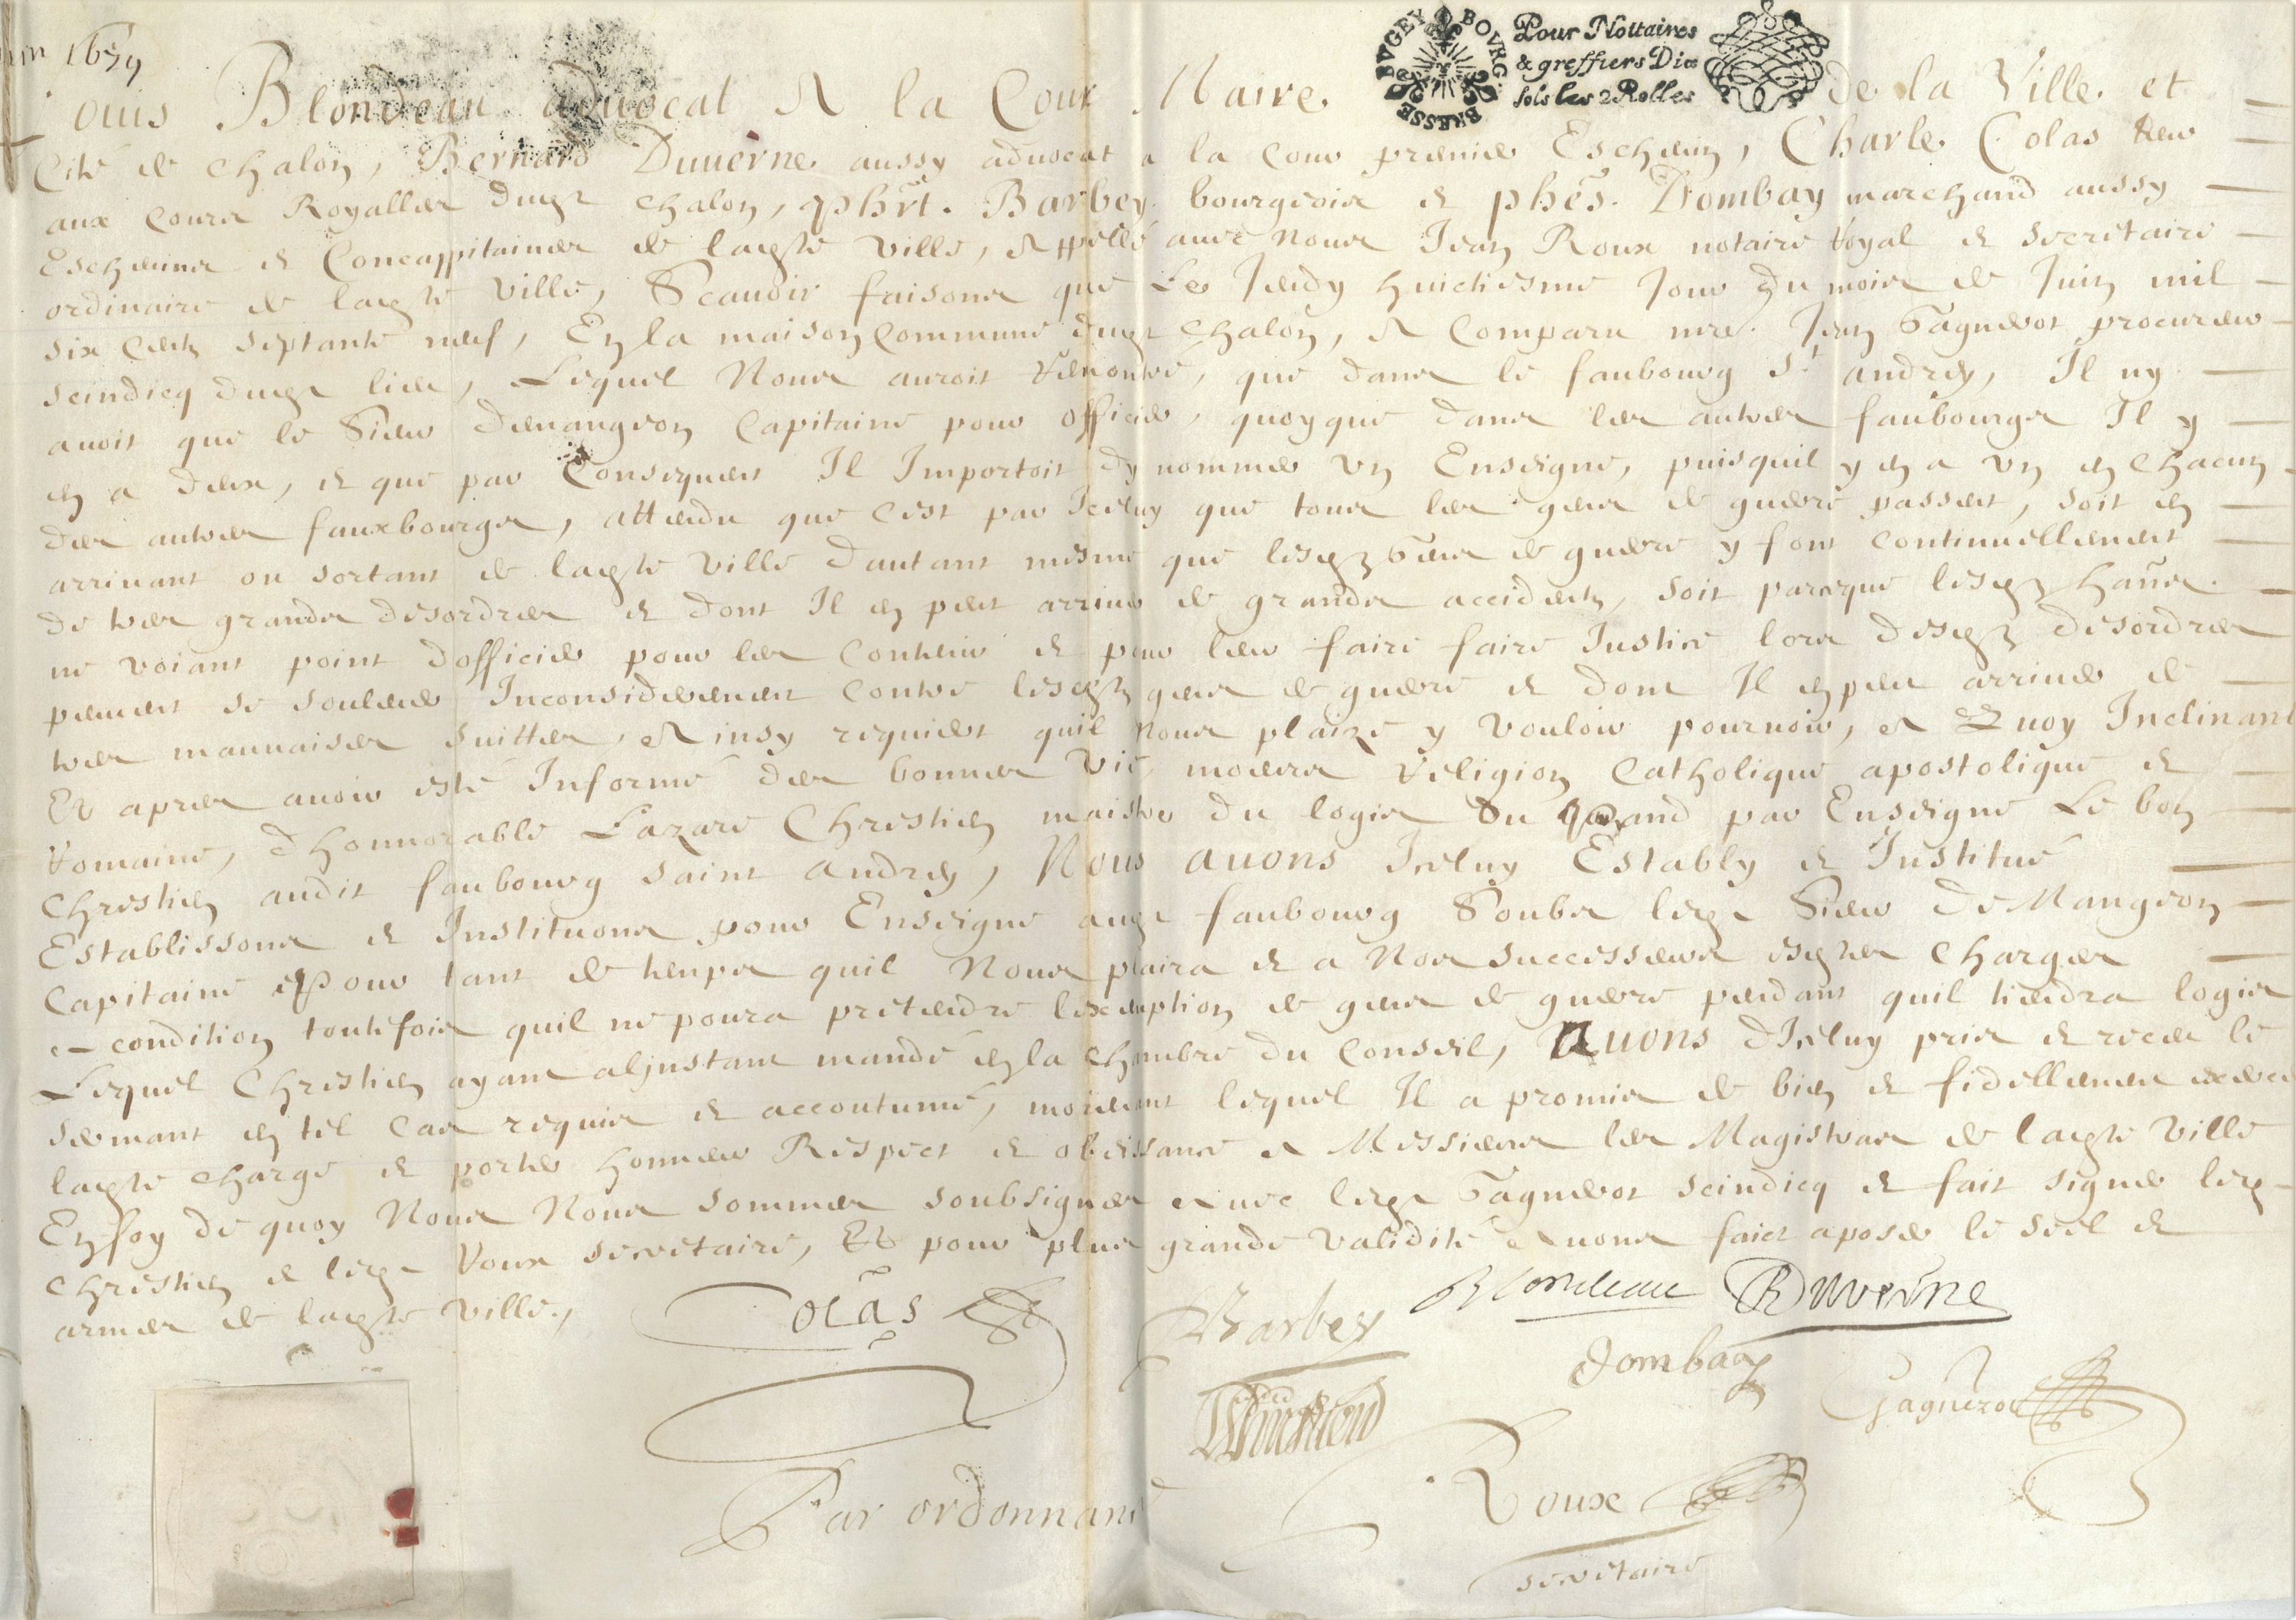 juin 1679
BRESSE BVGEY BOVRG.
Pour Nottaires
& greffiers Dix
sols les 2 Rolles
Louis Blondeau aduocat A la Cour Maire de la Ville et
Cité de chalon, Bernard Duuerne aussy aduocat a la cour premier Escheuin, Charle Colas
aux cours Royalles dud chalon, Phrt. Barbey bourgeois et phēs. Dombay marchand aussy
Escheuins et Concappitaines de ladte ville, Appellé auec nous Jean Roux notaire Royal et secretaire
ordinaire de ladte ville, Scauoir faisons que Le Jeudy huictiesme Jour du mois de Juin mil
six cent septante neuf, En la maison commune dud chalon, A Comparu mre. Jean Gagnerot procureur
scindicq dud lieu, Lequel Nous auroit remontré, que dans le faubourg St andrey, Il ny
auoit que le Sieur demangeon Capitaine pour officier, quoyque dans les autres faubourgs Il y
en a deux, et que par Consequent Il Importoit dy nommer vn Enseigne, puisquil y en a vn en chacun
des autres fauxbourgs, attendu que cest par Iceluy que tous les gens de guerre passent, soit en
arriuant ou sortant de ladte ville dautant mesme que lesd gens de guerre y font continuellement
de tres grands desordres et dont Il en peut arriuer de grands accidents, soit parceque lesd hañs
ne voiant point dofficier pour les contenir et pour leur faire faire Justice lors desd desordres
peuuent se souleuer Inconsiderement contre lesd gens de guerre et dont Il en peut arriuer de
tres mauuaises suittes, Ainsy requiert quil nous plaize y vouloir pouruoir, A Quoy Inclinant
Et apres auoir esté Informé des bonnes vie moeurs Religion Catholique apostolique et
Romaine, dhonnorable Lazare Chrestien maistre du logis du par Enseigne Le bon
Chrestien audit faubourg saint andrey, Nous auons Iceluy Estably et Institué
Establissons et Instituons pour Enseigne aud faubourg Soubs led Sieur de Mangeon
Capitaine et pour tant de temps quil Nous plaira et a Nos successeurs esdtes charges
a condition toutefois quil ne poura pretendre lexemption de gens de guerre pendant quil tiendra logis
Lequel Chrestien ayant alJnstant mandé en la chambre du conseil, Auons dIceluy pris et receu le
serment en tel cas requis et accoutumé, moienant lequel Il a promis de bien et fidellement exercer
ladte charge et porter honneur Respect et obeissance A Messieurs les Magistrats de ladte ville
En foy de quoy Nous Nous sommes soubsignes Auec led Gagnerot scindicq et fait signer led
chrestien et led Roux secretaire, Et pour plus grande validité Auons faict aposer le scel et
armes de ladte ville.,
Colas
Barbey
Blondeau
BDuverne
Dombay
Gagnerot
Par ordonnance
Roux
secretaire